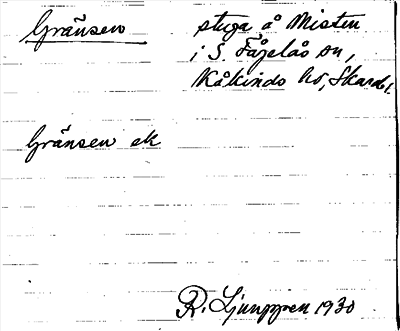 Gränsen stuga å Misten
i S. Fågelås sn,
Kåkinds hd, Skarab. l.
Gränsen ek
R. Ljunggren 1930